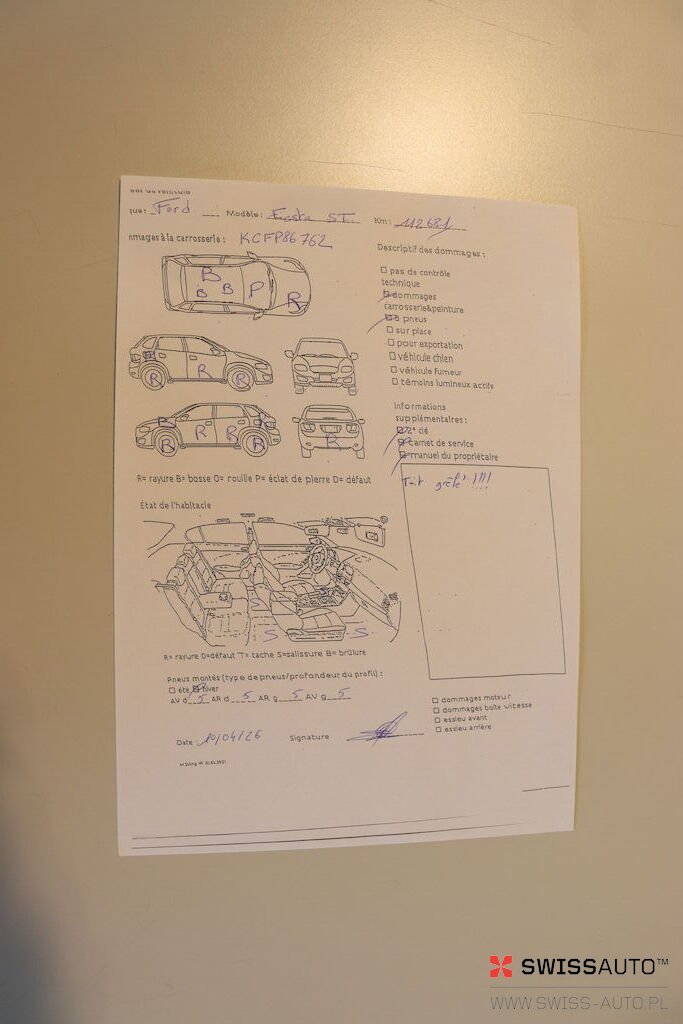 que: Ford Modèle: Km: 112681
mmages à la carrosserie: KCFP86762
Descriptif des dommages:
pas de contrôle
technique
dommages
carrosserie&peinture
pneus
sur place
pour exportation
véhicule chien
véhicule fumeur
témoins lumineux actifs
Informations
supplémentaires:
2ᵉ clé
carnet de service
manuel du propriétaire
B
B B P R
R R R
B R B R
R R R
R
R= rayure B= bosse O= rouille P= éclat de pierre D= défaut
Toit grêlé !!!!
État de l'habitacle
S S
S S
R= rayure D=défaut T= tache S=salissure B= brûlure
Pneus montés (type de pneus/profondeur du profil):
été hiver
AV d 5 AR d 5 AR g 5 AV g 5
dommages moteur
dommages boîte vitesse
essieu avant
essieu arrière
Date 10/04/26 Signature
SWISSAUTO™
WWW.SWISS-AUTO.PL